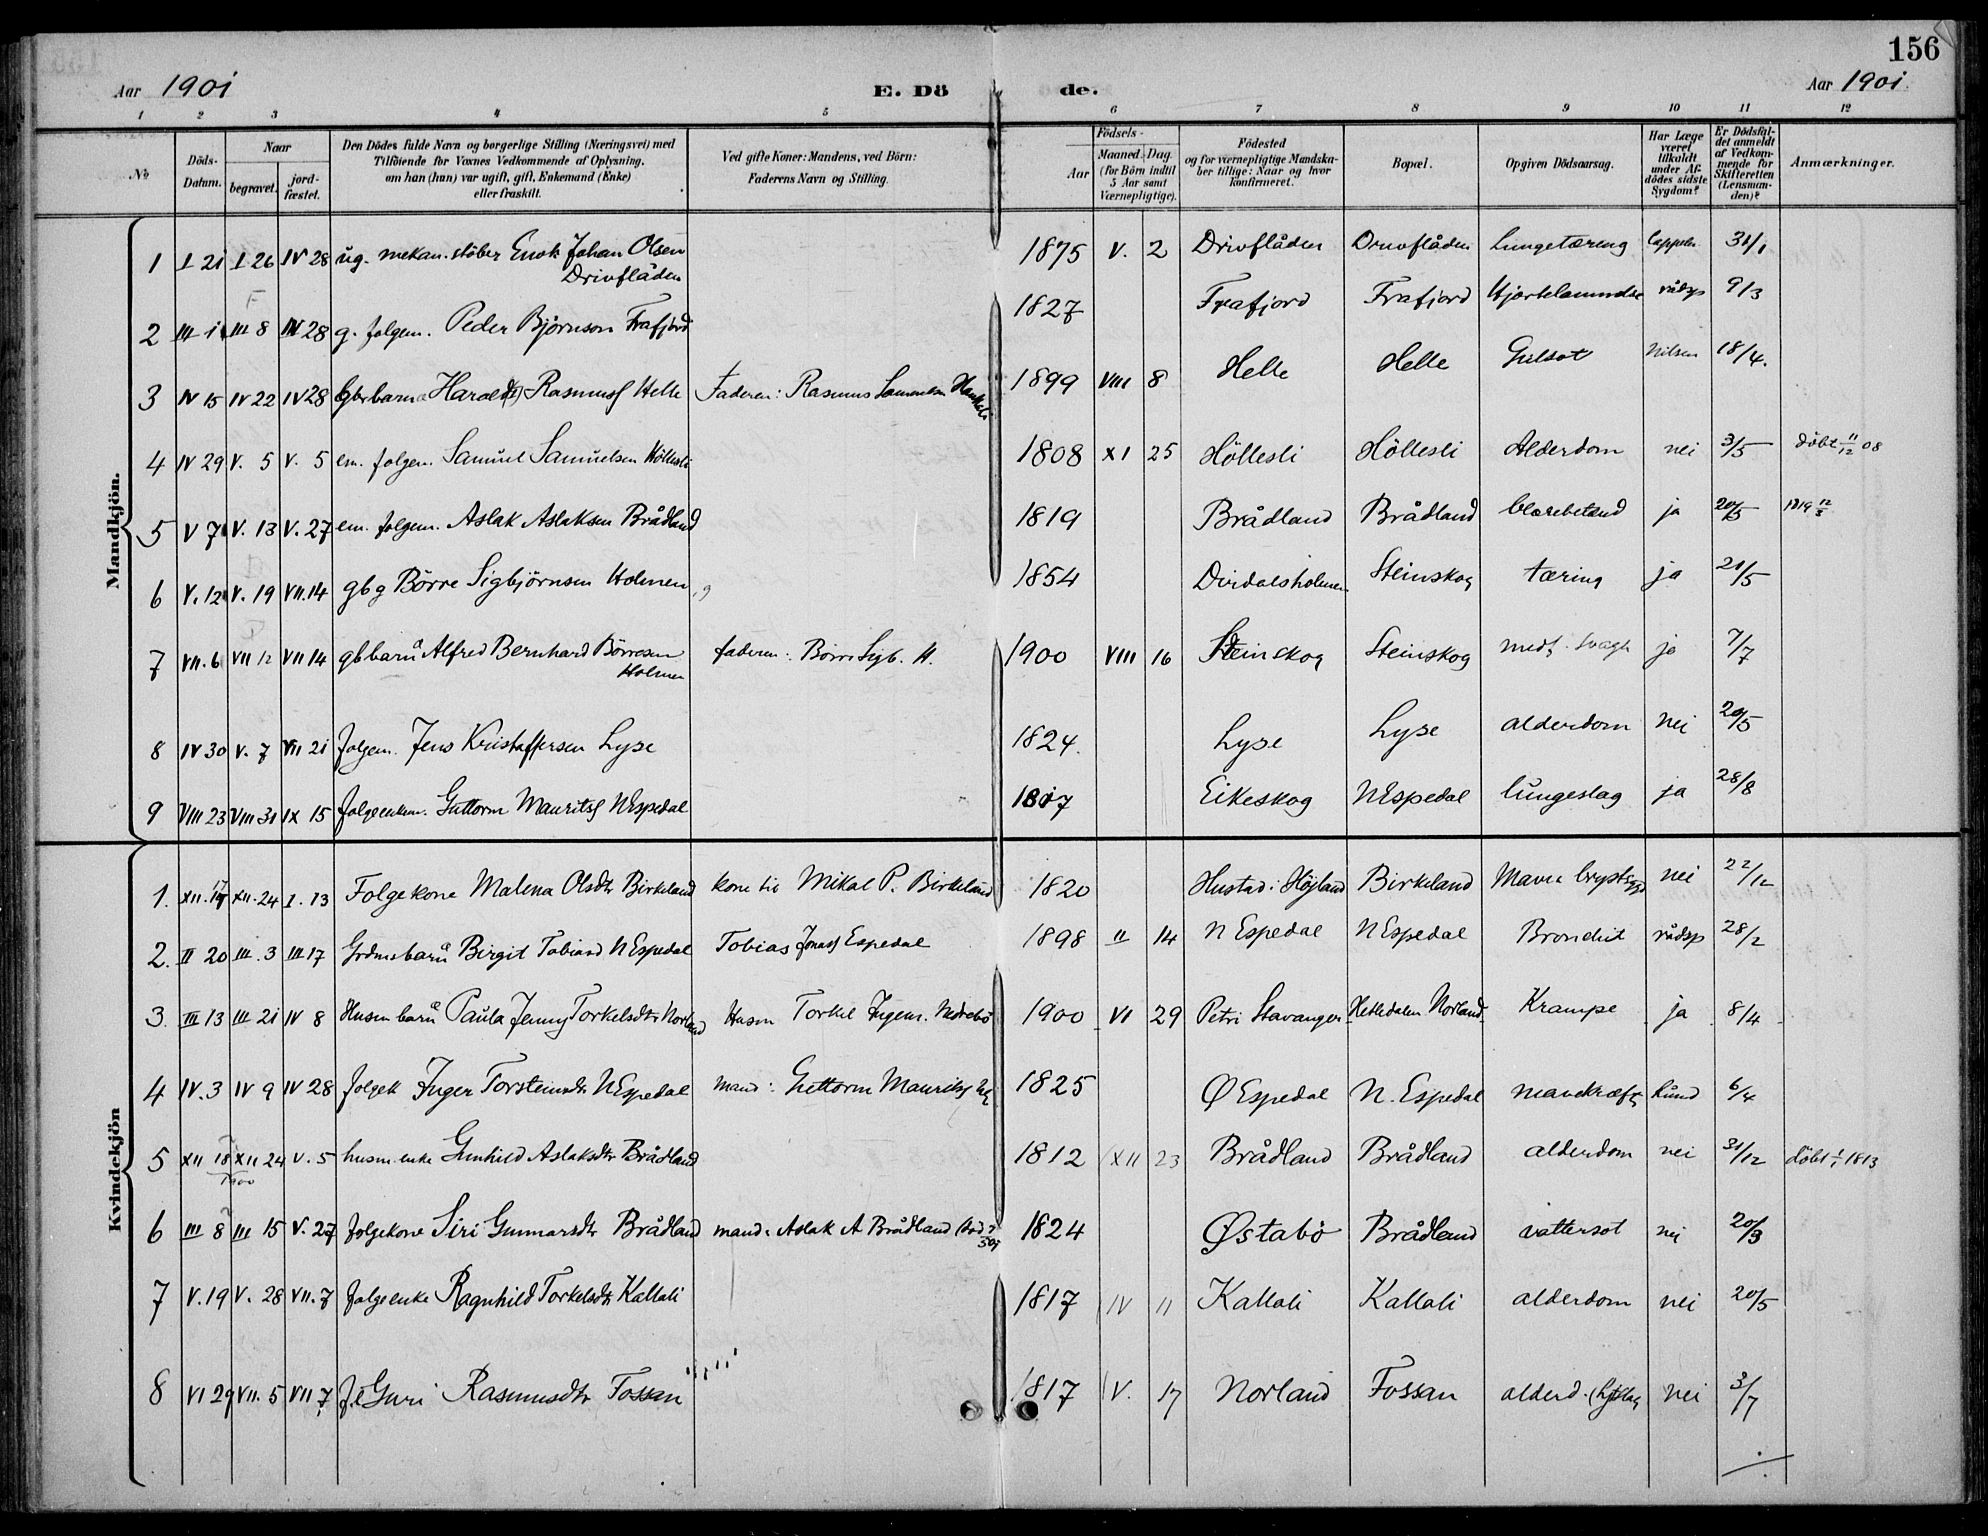 156
Aar 1901 E. Dö de. Aar 1901.
1 2 3 4 5 6 7 8 9 10 11 12
№ Döds-Datum. Naar begravet. jord-fæstet. Den Dödes fulde Navn og borgerlige Stilling (Næringsvei) med Tilföiende for Voxnes Vedkommende af Oplysning, om han (hun) var ugift, gift, Enkemand (Enke) eller fraskilt. Ved gifte Koner: Mandens, ved Börn: Faderens Navn og Stilling. Födsels- Aar Maaned. Dag. (for Börn indtil 5 Aar samt Værnepligtige). Födested og for værnepligtige Mandskaber tillige: Naar og hvor konfirmeret. Bopæl. Opgiven Dödsaarsag. Har Læge været tilkaldt under Afdödes sidste Sygdom? Er Dödsfaldet anmeldt af Vedkommende for Skifteretten (Lensmanden)? Anmærkninger.
Mandkjön.
1 I 21 I 26 IV 28 ug. mekan. stöber Enok Johan Olsen Drivflåden 1875 V. 2 Drivflåden Drivflåden Lungetæring 31/1
2 III 1 III 8 IV 28 g. folgem. Peder Björnson Frafjord 1827 Frafjord Frafjord rådsp 9/3
3 IV 15 IV 22 IV 28 gbrbarn Harald Rasmuss Helle Faderen: Rasmus 1899 VIII 8 Helle Helle Gulsot Nilsen 18/4.
4 IV 29 V. 5 V. 5 em. folgem. Samuel Samuelsen Höllesli 1808 XI 25 Höllesli Höllesli Alderdom nei 3/5 döbt 11/12 08
5 V 7 V. 13 V. 27 em. folgem. Aslak Aslaksen Brådland 1819 Brådland Brådland blærebetænd ja 20/5 1819 12/3
6 V. 12 V. 19 VII.14 gbg Börre Sigbjörnsen Holmen 1854 Dirdalsholmen Steinskog tæring ja 21/5
7 VII. 6 VII 12 VII 14 gbbarn Alfred Bernhard Börresen Holmen faderen: Börre Sigb. H. 1900 VIII 16 Steinskog Steinskog medf. svagh ja 7/7
8 IV 30 V. 7 VII 21 folgem. Jens Kristoffersen Lyse 1824. Lyse Lyse alderdom nei 20/5
9 VIII 23 VIII 31 IX 15 folgeenkem. Guttorm Maurits N Espedal 1817 Eikeskog N Espedal lungeslag ja 28/8
Kvindekjön
1. XII. 17 XII. 24 I. 13 Folgekone Malena Olsdtr Birkeland kone til Mikal P. Birkeland 1820 Hustad i Höjland Birkeland Mave brystsyge nei 22/12
2. II 20 III. 3 III 17 Grdmsbarn Birgit Tobiasd N Espedal Tobias Jonass Espedal 1898 II 14 N Espedal N Espedal Bronchit rådsp 28/2
3. III 13 III 21 IV 8 Husm barn Paula Jenny Torkelsdtr Norland Husm Torkel Ingem. Nedrebö 1900 VI 29 Petri Stavanger Norland Krampe ja 8/4
4 IV. 3 IV 9 IV 28 folgek Inger Torsteinsdtr N Espedal mand: Guttorm Maurits 1825 Ø Espedal N. Espedal mavekræft Lund 6/4
5 XII 18 1900 XII 24 V. 5 husm. enke Gunhild Aslaksdtr Brådland 1812 XII 23 Brådland Brådland alderdom nei 31/12 döbt 1/1 1813
6 III 8 III 15 V. 27 folgekone Siri Gunnarsdtr Brådland mand: Aslak A Brådland 1824 Østabö Brådland vattersot nei 20/3
7 V. 19 V. 28 VII. 7 folgeenke Ragnhild Torkelsdtr Kallali 1817 IV 11 Kallali Kallali alderdom nei 20/5
8 VI 29 VII. 5 VII 7 f.e Guri Rasmusdtr Fossan 1817 V. 17 Norland Fossan alderd. nei 3/7